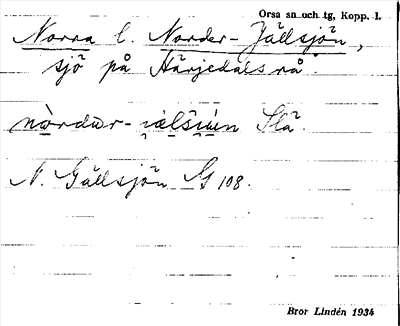 Orsa sn och tg, Kopp. l.
Norra l. Norder-Jällsjön,
sjö på Härjedalsrå.
nòrdær- iælsiúın Slä.
N. Gällsjön G 108.
Bror Lindén 1934